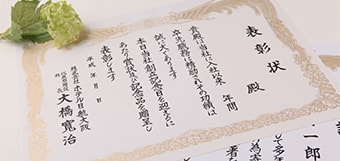 表彰状
殿
貴殿は当社に入社以来 年間
卒先職務に精励されその功績は
誠に大であります
本日当社創立記念日を迎えるに
あたり賞状及び記念品を贈呈し
表彰します
平成 年 月 日
株式会社 ホテル日航大阪
大橋寛治
一郎